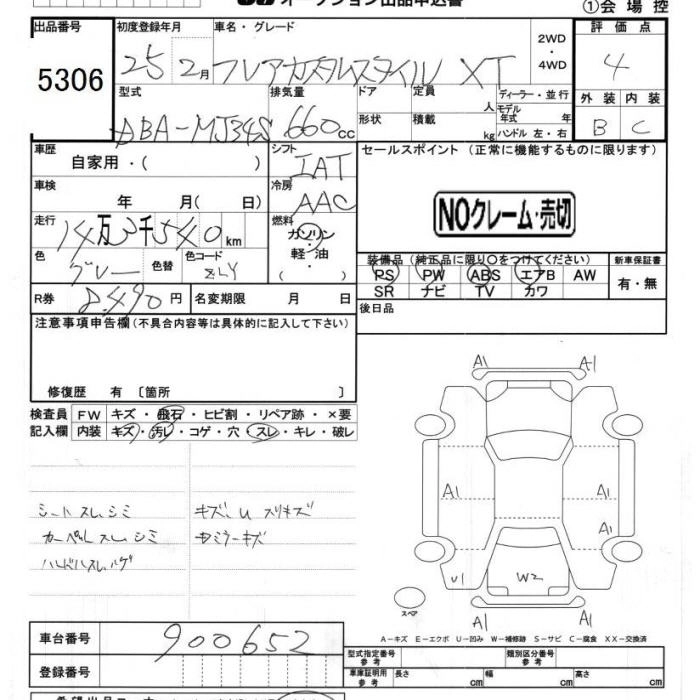 オークション出品申込書
①会場控
出品番号 初度登録年月 車名・グレード 2WD・4WD 評価点
5306 25 2月 フレアカスタムスタイル XT 4
型式 排気量 ドア 定員 人 ディーラー・並行 外装 内装
モデル年式 年
DBA-MJ34S 660cc 形状 積載 kg ハンドル 左・右 B C
車歴 シフト セールスポイント (正常に機能するものに限ります)
自家用・( ) IAT
車検 冷房
年 月( 日) AAC NOクレーム・売切
走行 燃料
14万3千540km ガソリン・軽油・( )
装備品 (純正品に限り○をつけてください) 新車保証書
色 色替 色コード
グレー ZLY PS PW ABS エアB AW 有・無
SR ナビ TV カワ
R券 8,490円 名変期限 月 日
後日品
注意事項申告欄(不具合内容等は具体的に記入して下さい)
修復歴 有〔箇所 〕
検査員 FW キズ・飛石・ヒビ割・リペア跡・×要
記入欄 内装 キズ・汚レ・コゲ・穴・スレ・キレ・破レ
シートスレシミ キズ、U スリキズ
カーペットスレシミ キズ
ハンドルスレハゲ
A1 A1
A1 A1
A1
U1 W2
スペア A1 A1
A-キズ E-エクボ U-凹み W-補修跡 S-サビ C-腐食 XX-交換済
車台番号 900652
型式指定番号 参考 類別区分番号 参考
登録番号 車庫証明用 参考 長さ cm 幅 cm 高さ cm